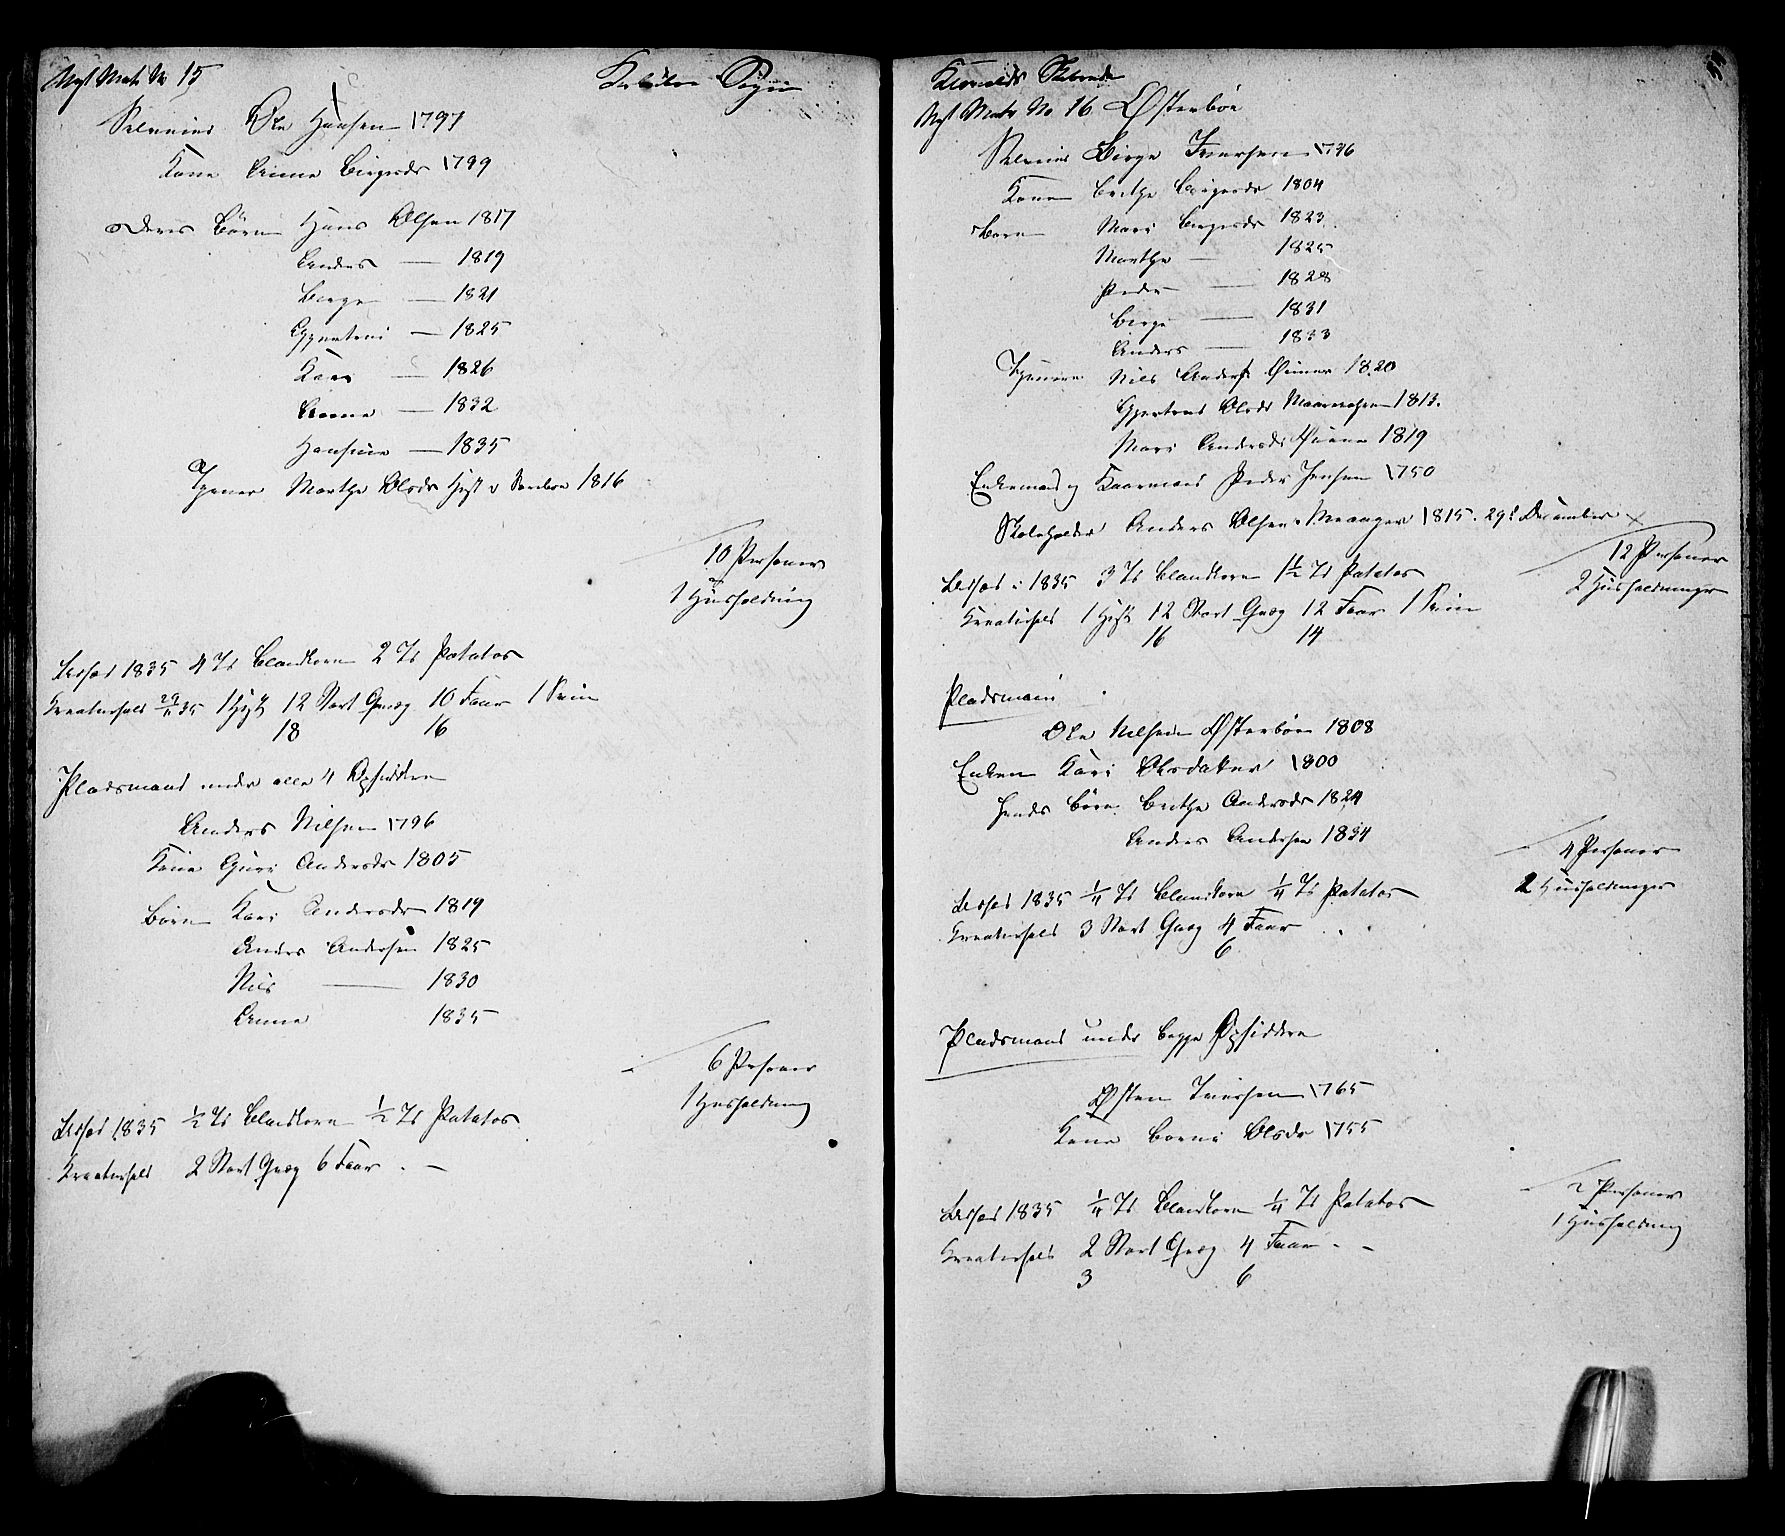 Nyt Matr No 15
Sogn
Selveier Ole Hansen 1797
Kone Anna Birgesdr 1799
Deres Børn Hans Olsen 1817
Anders — 1819
Birge — 1821
Gjertrui — 1825
Kari — 1826
Anna — 1832
Hansine — 1835
Tjener Marthe Olsdr 1816
10 Personer
1 Huusholdning
Udsæd 1835 4 Td Blandkorn 2 Td Potatos
Kreaturhold 29/11 35 1 Hest 12 Stort Qvæg 10 Faar 1 Sviin
18 16
Pladsmand under alle 4 Opsiddere
Anders Nilsen 1796
Kone Guri Andersdr 1805
Børn Kari Andersdr 1819
Anders Andersen 1825
Nils — 1830
Anna 1835
6 Personer
1 Huusholdning
Udsæd 1835 1/2 Td Blandkorn 1/2 Td Potatos
Kreaturhold 2 Stort Qvæg 6 Faar . —
Skibrede
Nyt Matr No 16 Østerbøe
Selveier Birge Iversen 1796
Kone Brithe Birgesdr 1804
Børn Mari Birgesdr 1823
Marthe — 1825
Peder — 1828
Birge — 1831
Anders — 1833
Tjenere Nils Anders 1820
Gjertrud Olsdr 1813.
Mari Andersdr 1819
Enkemand og Kaarmand Peder Jensen 1750
Skoleholder Anders Olsen 1815. 29d December
12 Personer
2 Huusholdninger
Udsæd i 1835 3 Td Blandkorn 1 1/2 Td Potatos
Kreaturhold 1 Hest 12 Stort Qvæg 12 Faar 1 Sviin
16 14
Pladsmænd
Ole Nilsen Østerbøe 1808
Enken Kari Olsdatter 1800
Hendes Børn Brithe Andersdr 1824
Anders Andersen 1834
4 Personer
2 Huusholdninger
Udsæd 1835 1/4 Td Blandkorn 1/4 Td Potatos
Kreaturhold 3 Stort Qvæg 4 Faar . .
6
Pladsmand under begge Opsiddere
Østen Iversen 1765
Kone Borni Olsdr 1755
2 Personer
1 Huusholdning
Udsæd 1835 1/4 Td Blandkorn 1/4 Td Potatos
Kreaturhold 2 Stort Qvæg 4 Faar - -
3 6